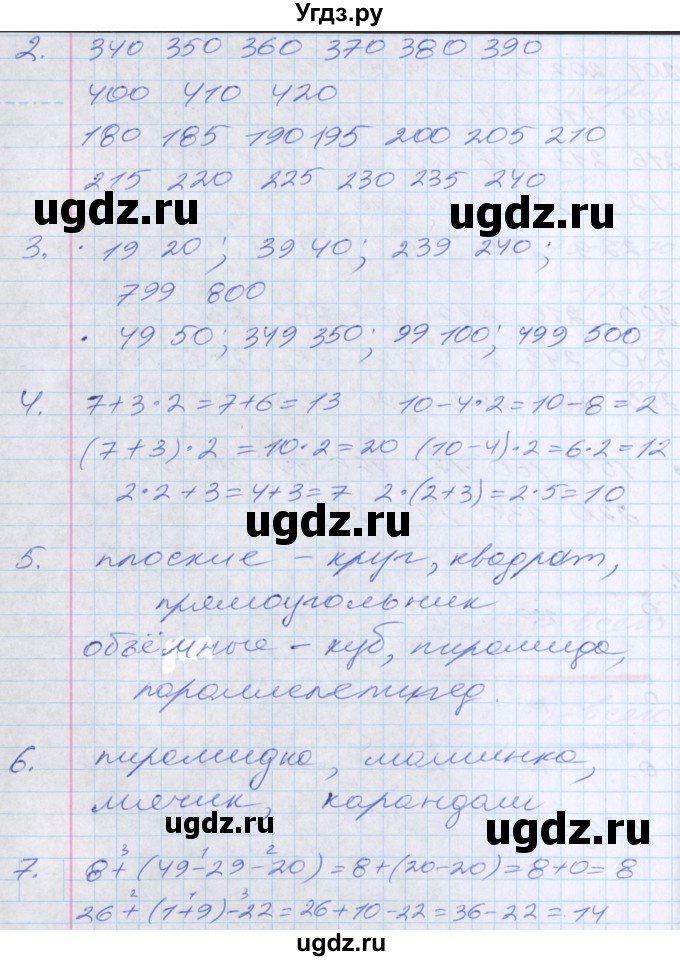 Угдз.ру
2. 340 350 360 370 380 390
400 410 420
180 185 190 195 200 205 210
215 220 225 230 235 240
ugdz.ru ugdz.ru
3. · 19 20; 39 40; 239 240;
799 800
· 49 50; 349 350; 99 100; 499 500
4. 7+3·2=7+6=13 10-4·2=10-8=2
(7+3)·2=10·2=20 (10-4)·2=6·2=12
2·2+3=4+3=7 2·(2+3)=2·5=10
ugdz.ru
5. плоские – круг, квадрат,
прямоугольник
объёмные – куб, пирамида,
параллелепипед.
6. пирамидка, машинка,
мячик, карандаш
ugdz.ru ugdz.ru
3 1 2
7. 8+(49-29-20)=8+(20-20)=8+0=8
2 1 3
26+(1+9)-22=26+10-22=36-22=14
ugdz.ru